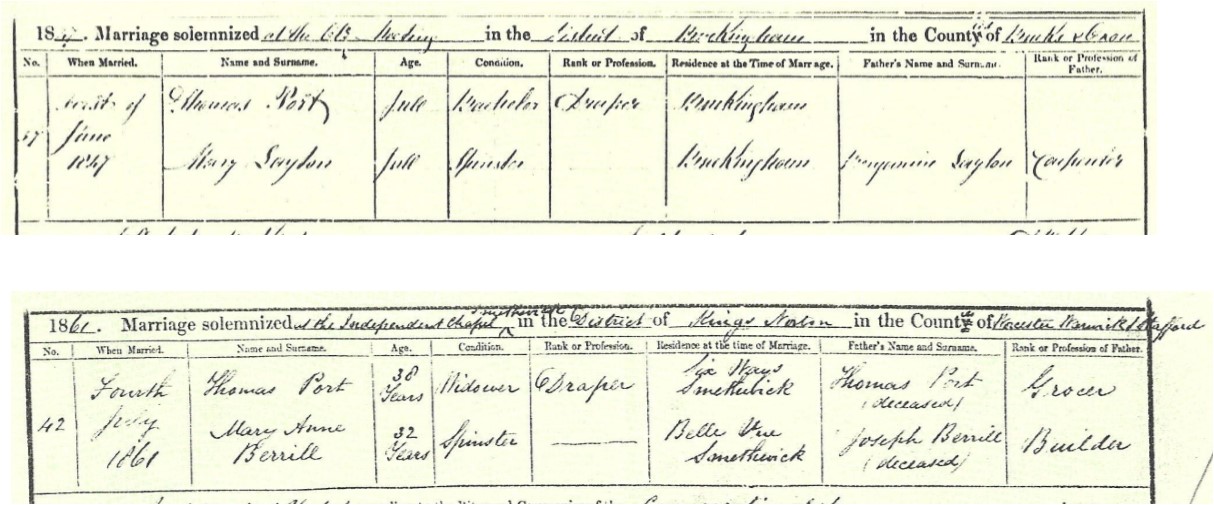 1847. Marriage solemnized at the Old Meeting in the District of Buckingham in the Counties of Bucks & Oxon
No. When Married. Name and Surname. Age. Condition. Rank or Profession. Residence at the Time of Marriage. Father's Name and Surname. Rank or Profession of Father.
of Thomas Port full Bachelor Draper Buckingham
57 June
1847 Mary Layton full Spinster Buckingham Benjamin Layton Carpenter
1861. Marriage solemnized at the Independent Chapel Smethwick in the District of Kings Norton in the Counties of Worcester Warwick & Stafford
No. When Married. Name and Surname. Age. Condition. Rank or Profession. Residence at the time of Marriage. Father's Name and Surname. Rank or Profession of Father.
Fourth Thomas Port 38 Years Widower Draper Six Ways Smethwick Thomas Port (deceased) Grocer
42 July
1861 Mary Anne Berrill 32 Years Spinster Belle Vue Smethwick Joseph Berrill (deceased) Builder